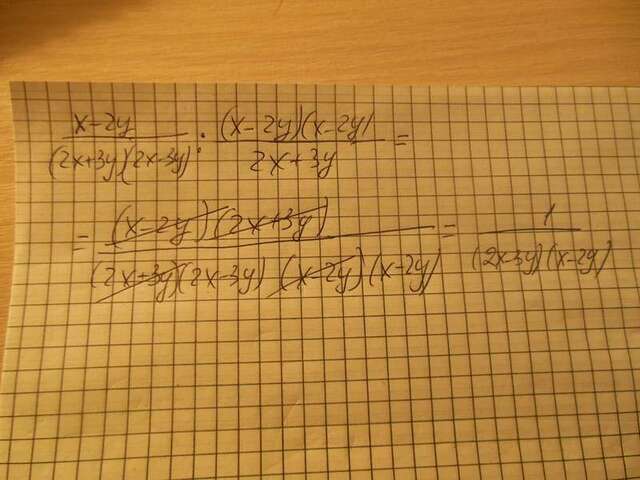 x-2y/(2x+3y)(2x-3y) : (x-2y)(x-2y)/2x+3y =
= (x-2y)(2x+3y)/(2x+3y)(2x-3y)(x-2y)(x-2y) = 1/(2x-3y)(x-2y)